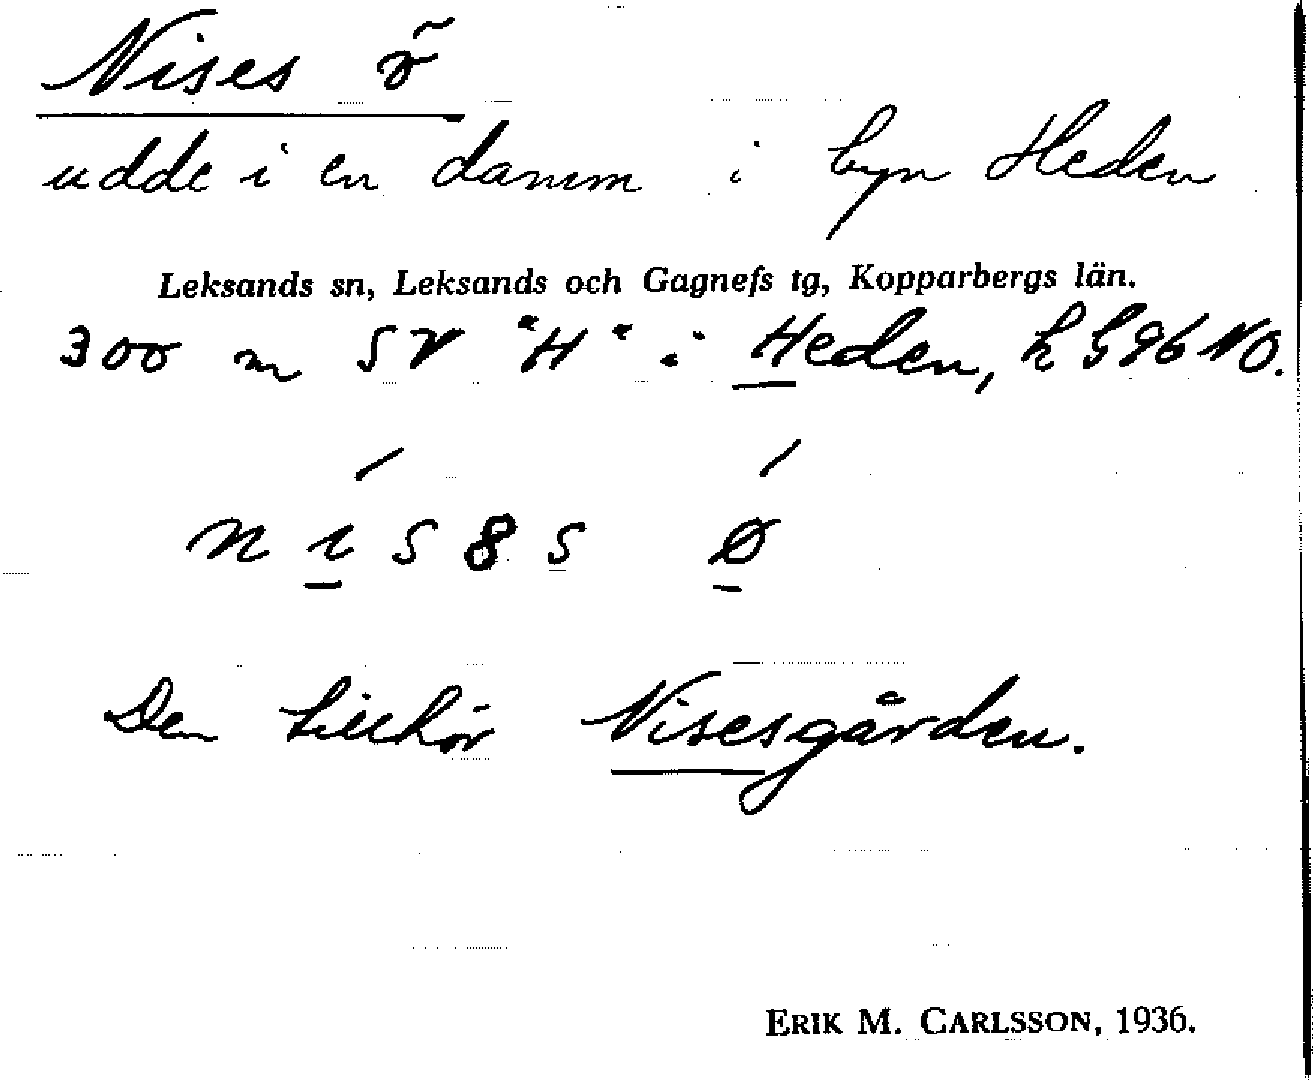 Nises ö
udde i en damm i byn Heden
Leksands sn, Leksands och Gagnefs tg, Kopparbergs län.
300 m SV "H" i Heden, h G 96 NO.
n i s 8 s ø
Den tillhör Nisesgården.
ERIK M. CARLSSON, 1936.